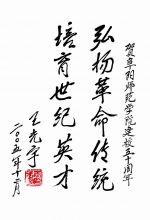 贺阜阳师范学院建校五十周年
弘扬革命传统
培育世纪英才
王光宇
二〇〇五年十二月